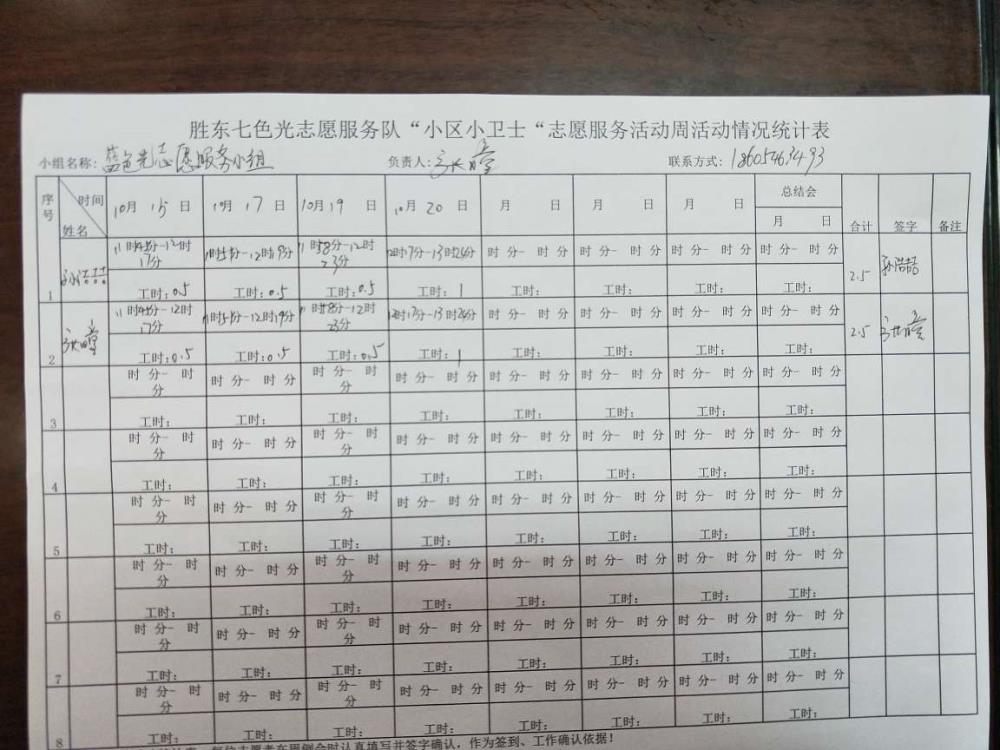 胜东七色光志愿服务队“小区小卫士“志愿服务活动周活动情况统计表
小组名称：蓝色光志愿服务小组 负责人： 联系方式：18605463493
序号 时间 姓名 10月 15 日 10月 17 日 10月 19 日 10月 20 日 月 日 月 日 月 日 总结会 月 日 合计 签字 备注
1 孙浩喆 11时45分-12时17分 12时19分 11时58分-12时23分 12时17分-13时24分 时 分- 时 分 时 分- 时 分 时 分- 时 分 时 分- 时 分 2.5 孙浩喆
工时：0.5 工时：0.5 工时：0.5 工时：1 工时： 工时： 工时： 工时：
2 11时45分-12时17分 12时19分 11时58分-12时23分 12时17分-13时24分 时 分- 时 分 时 分- 时 分 时 分- 时 分 时 分- 时 分 2.5
工时：0.5 工时：0.5 工时：0.5 工时：1 工时： 工时： 工时： 工时：
3 时 分- 时 分 时 分- 时 分 时 分- 时 分 时 分- 时 分 时 分- 时 分 时 分- 时 分 时 分- 时 分 时 分- 时 分
工时： 工时： 工时： 工时： 工时： 工时： 工时： 工时：
4 时 分- 时 分 时 分- 时 分 时 分- 时 分 时 分- 时 分 时 分- 时 分 时 分- 时 分 时 分- 时 分 时 分- 时 分
工时： 工时： 工时： 工时： 工时： 工时： 工时： 工时：
5 时 分- 时 分 时 分- 时 分 时 分- 时 分 时 分- 时 分 时 分- 时 分 时 分- 时 分 时 分- 时 分 时 分- 时 分
工时： 工时： 工时： 工时： 工时： 工时： 工时： 工时：
6 时 分- 时 分 时 分- 时 分 时 分- 时 分 时 分- 时 分 时 分- 时 分 时 分- 时 分 时 分- 时 分 时 分- 时 分
工时： 工时： 工时： 工时： 工时： 工时： 工时： 工时：
7 时 分- 时 分 时 分- 时 分 时 分- 时 分 时 分- 时 分 时 分- 时 分 时 分- 时 分 时 分- 时 分 时 分- 时 分
工时： 工时： 工时： 工时： 工时： 工时： 工时： 工时：
8 时 分- 时 分 时 分- 时 分 时 分- 时 分 时 分- 时 分 时 分- 时 分 时 分- 时 分 时 分- 时 分 时 分- 时 分
工时： 工时： 工时： 工时： 工时： 工时： 工时： 工时：
每位志愿者在周例会时认真填写并签字确认，作为签到、工作确认依据！